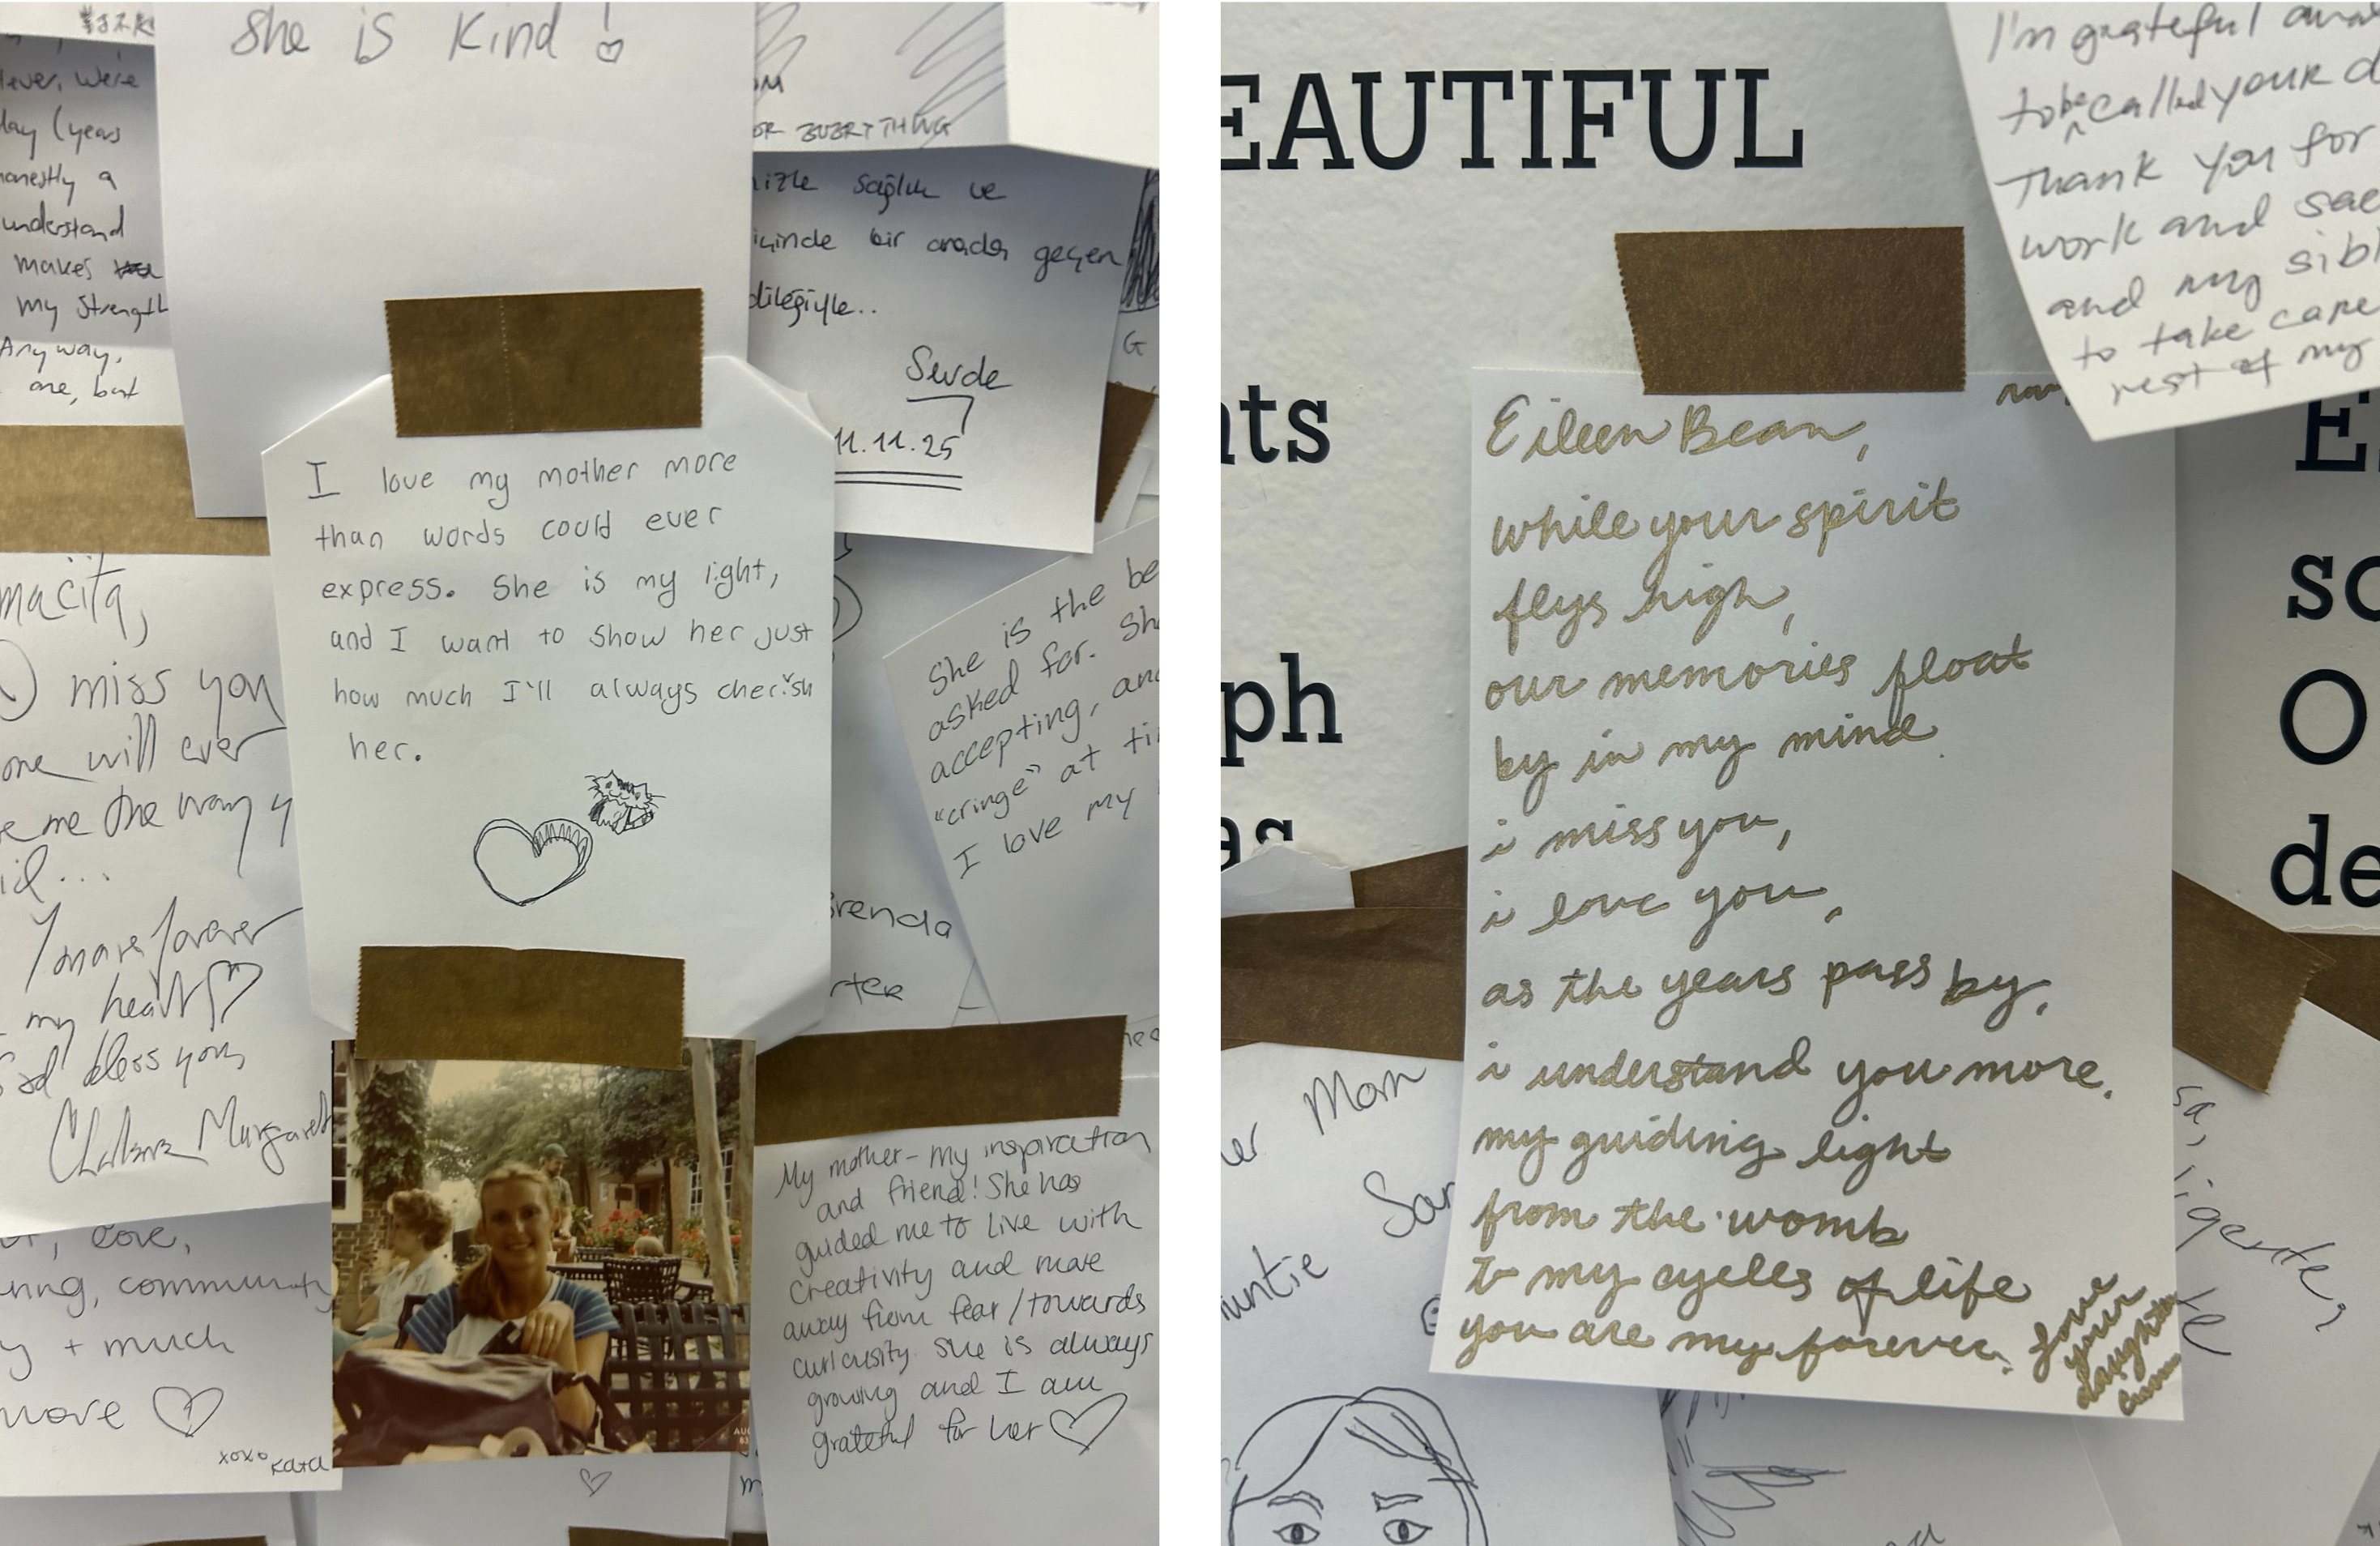 She is kind!
lever, we're
day (years
honestly a
understand
makes
my strength
Anyway,
one, but
OR EVERYTHING
sağlık ve
içinde bir arada geçen
dileğiyle..
Sevde
11.11.25
G
I love my mother more
than words could ever
express. She is my light,
and I want to show her just
how much I'll always cherish
her.
macita,
miss you
one will ever
me the way y
forever
my heart
God bless you,
Margaret
She is the be
asked for. Sh
accepting, and
"cringe" at ti
I love my
Brenda
love,
community
y + much
more
xoxo Kata
AUG
My mother - my inspiration
and friend! She has
guided me to live with
creativity and move
away from fear/towards
curiosity. She is always
growing and I am
grateful for her
EAUTIFUL
nts
ph
es
E
so
O
de
I'm grateful
to be called your d
Thank you for
work and sac
and my sibl
to take care
rest of my
Eileen Bean,
while your spirit
flys high,
our memories float
by in my mind
i miss you,
i love you,
as the years pass by,
i understand you more.
my guiding light
from the womb
to my cycles of life
you are my forever.
love
your
daughter
Mom
auntie